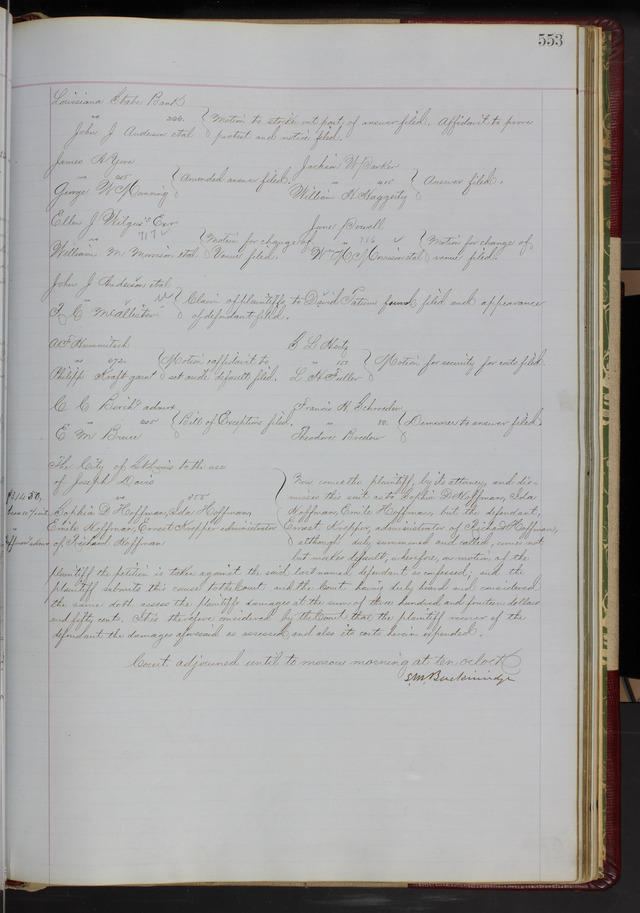 553
Louisiana State Bank
vs 244.
John J Anderson etal
Motion to strike out part of answer filed. Affidavit to prove
protest and notice filed.
James H Yore
vs 205
George W Manning
Amended answer filed.
Joakim W Parker
vs
William H Haggerty
Answer filed.
Ellen J Wilgus Exr
vs 717
William M Morrison etal
Motion for change of
Venue filed.
Jane Powell
vs 716
Wm M Morrison etal
Motion for change of
venue filed.
John J Anderson etal
vs
T C McAllister
Claim of plaintiffs to David Tatum filed and appearance
of defendant filed.
vs 972
Philipp Kraft garn
Motion & affidavit to
set aside default filed.
G L Hertz
vs
L H Fuller
Motion for security for costs filed.
C C admrx
vs 205
E M Bruce
Bill of Exceptions filed.
Francis H Schroeder
vs
Theodore Bredow
Demurrer to answer filed.
The City of St Louis to the use
of Joseph Davis
vs 255
Sophia D Hoffman, Ida Hoffman,
Emile Hoffman, Ernest Knopper administrator
of Richard Hoffman
$314.50
Now comes the plaintiff, by its attorney, and dis-
misses this suit as to Sophia D Hoffman, Ida
Hoffman, Emile Hoffman, but the defendant,
Ernest Knopper, administrator of Richard Hoffman,
although duly summoned and called, comes not
but makes default; wherefore, on motion of the
plaintiff the petition is taken against the said last named defendant as confessed; and the
plaintiff submits this cause to the Court and the Court having duly heard and considered
the same doth assess the plaintiffs damages at the sum of three hundred and fourteen dollars
and fifty cents. It is therefore considered by the Court that the plaintiff recover of the
defendant the damages aforesaid as assessed and also its costs herein expended.
Court adjourned until to morrow morning at ten oclock
S.M. Breckinridge